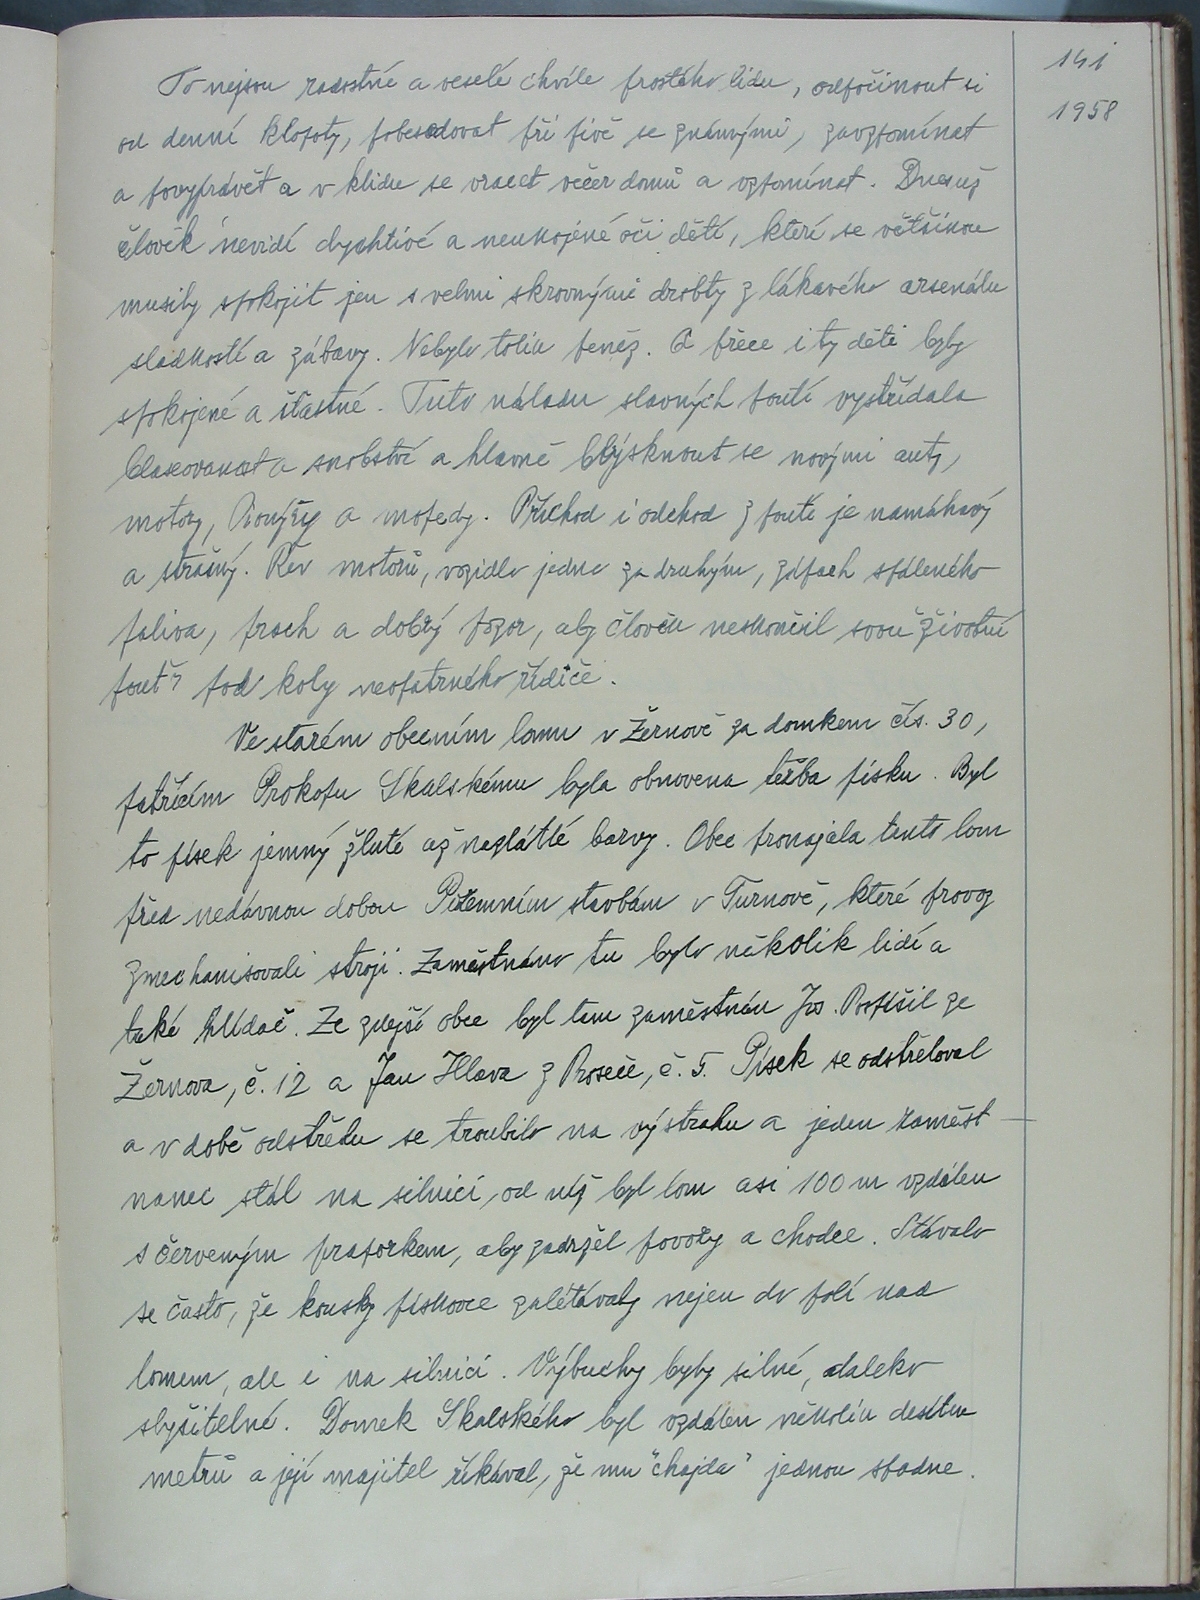 141
1958
To nejsou radostné a veselé chvíle prostého lidu, odpočinout si
od denní klopoty, pobesedovat při pivě se známými, zavzpomínat
a povyprávět a v klidu se vracet večer domů a vzpomínat. Dnes už
člověk nevidí dychtivé a neukojené oči dětí, které se většinou
musily spokojit jen s velmi skrovnými drobty z lákavého arsenálu
sladkostí a zábavy. Nebylo tolik peněz. A přece i ty děti byly
spokojené a šťastné. Tuto náladu slavných poutí vystřídala
blaseovanost a snobství a hlavně blýsknout se novými auty,
motory, a mopedy. Příchod i odchod z pouti je namáhavý
a strašný. Řev motorů, vozidlo jedno za druhým, zápach spáleného
paliva, prach a dobrý pozor, aby člověk neskončil svou životní
pouť pod koly neopatrného řidiče.
Ve starém obecním lomu v Žernově za domkem čís. 30,
patřícím Prokopu Skalskému byla obnovena těžba písku. Byl
to písek jemný žluté až nazlátlé barvy. Obec pronajala tento lom
před nedávnou dobou Pozemním stavbám v Turnově, které provoz
zmechanisovali stroji. Zaměstnáno tu bylo několik lidí a
také hlídač. Ze zdejší obce byl tam zaměstnán Jos. Pospíšil ze
Žernova, č. 12 a Jan Hlava z Roseče, č. 5. Písek se odstřeloval
a v době odstřelu se troubilo na výstrahu a jeden zaměst-
nanec stál na silnici, od níž byl lom asi 100 m vzdálen
s červeným praporkem, aby zadržel povozy a chodce. Stávalo
se často, že kousky pískovce zalétávaly nejen do polí nad
lomem, ale i na silnici. Výbuchy byly silné, daleko
slyšitelné. Domek Skalského byl vzdálen několik desítek
metrů a její majitel říkával, že mu "chajda" jednou spadne.